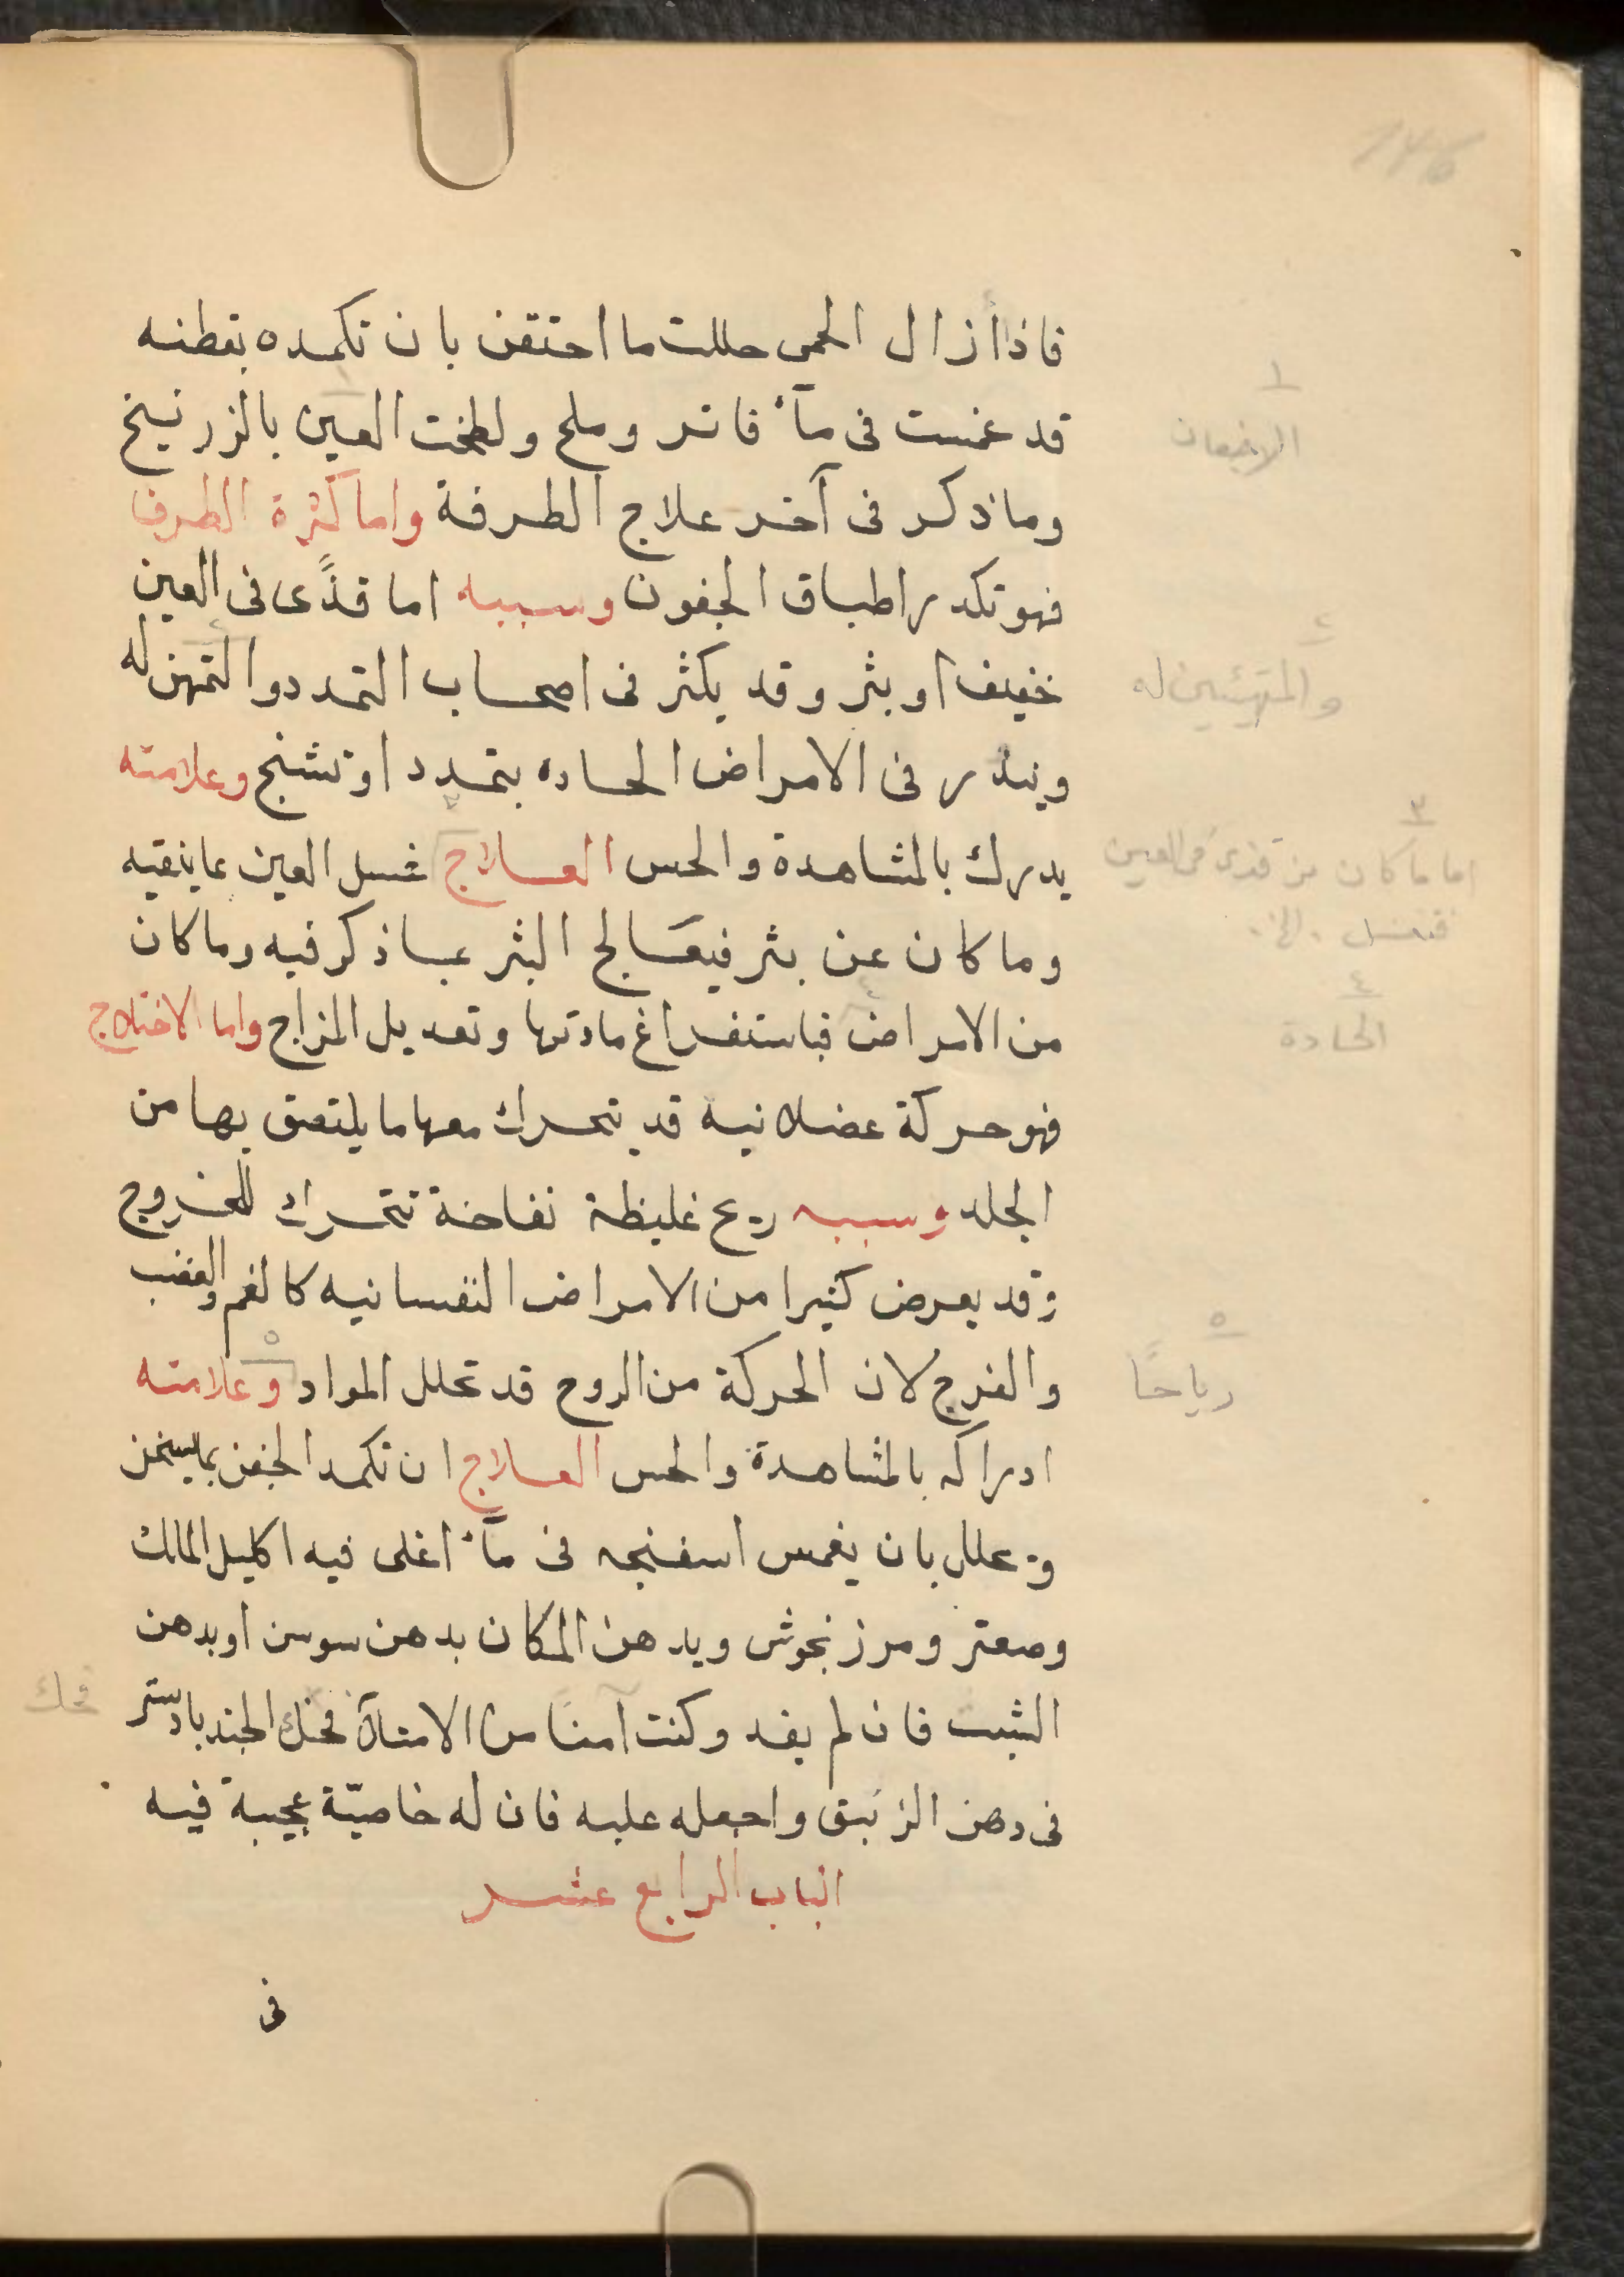 فاذا زال الحمى حللت ما احتقن بان تكمده بقطنه
قد غمست فى مآء فاتر وملح ولطخت العين بالزرنيخ
وما ذكر فى آخر علاج الطرفة واما كثرة الطرف
فهو تكدر اطباق الجفون وسببه اما قذًى فى العين
خفيف او بثر وقد يكثر فى اصحاب التمدد والتمهن له
وينذر فى الامراض الحاده بتمدد او تشنج وعلامته
يدرك بالمشاهدة والحس العلاج غسل العين عا ينقيه
وما كان عن بثر فيعَالج البثر عبا ذكر فيه وما كان
من الامراض فباستفراغ مادتها وتعديل المزاج واما الاختلاج
فهو حركة عضلانيه قد تتحرك معها ما يلتصق بها من
الجلد وسببه ريح غليظة نفاخة تتحرك للخروج
وقد يعرض كثيرا من الامراض النفسانيه كالغم والغضب
والفرح لان الحركة من الروح قد تحلل المواد وعلامته
ادراكه بالمشاهدة والحس العلاج ان تكمد الجفن بما يسخن
ويحلل بان يغمس اسفنجه فى مآء اغلى فيه اكليل المالك
وصعتر ومرزنجوش ويدهن المكان بدهن سوسن او بدهن
الشبت فان لم يفد وكنت آمنًا من الامتلآ فحنك الجندبادستر
فى دهن الزنبق واجعله عليه فان له خاصيّة عجيبة فيه
الباب الرابع عشر
فى
١
الاجفان
٢
والمتهيئين له
٣
اما ما كان من قذى فى العين
فتغسل . الخ .
٤
الحادة
٥
رياحًا
فحك